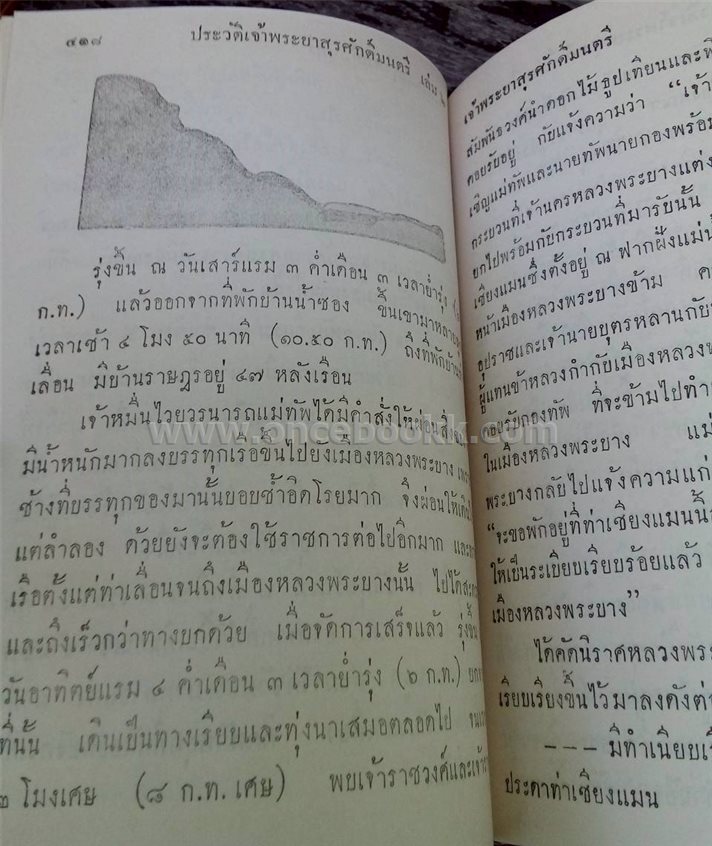 ๔๑๘ ประวัติเจ้าพระยาสุรศักดิ์มนตรี เล่ม ๒
รุ่งขึ้น ณ วันเสาร์แรม ๓ ค่ำเดือน ๓ เวลาย่ำรุ่ง
ก.ท.) แล้วออกจากที่พักบ้านน้ำซอง ขึ้นเขามาหลาย
เวลาเช้า ๔ โมง ๕๐ นาที (๑๐.๕๐ ก.ท.) ถึงที่พักบ้าน
เลื่อน มีบ้านราษฎรอยู่ ๔๗ หลังเรือน
เจ้าหมื่นไวยวรนารถแม่ทัพได้มีคำสั่งให้ผ่อนสิ่ง
มีน้ำหนักมากลงบรรทุกเรือขึ้นไปยังเมืองหลวงพระบาง
ช้างที่บรรทุกของมานั้นยอบช้ำอิดโรยมาก จึงผ่อนให้เดิน
แต่ลำลอง ด้วยยังจะต้องใช้ราชการต่อไปอีกมาก และ
เรือตั้งแต่ท่าเลื่อนจนถึงเมืองหลวงพระบางนั้น ไปได้
และถึงเร็วกว่าทางบกด้วย เมื่อจัดการเสร็จแล้ว รุ่งขึ้น
วันอาทิตย์แรม ๔ ค่ำเดือน ๓ เวลาย่ำรุ่ง (๖ ก.ท.)
ที่นั้น เดินเป็นทางเรียบและทุ่งนาเสมอตลอดไป
๒ โมงเศษ (๘ ก.ท. เศษ) พบเจ้าราชวงศ์และเจ้า
เจ้าพระยาสุรศักดิ์มนตรี
สัมพันธวงศ์นำดอกไม้ธูปเทียนและ
คอยรับอยู่ กับแจ้งความว่า “เจ้า
เชิญแม่ทัพและนายทัพนายกองพร้อม
กระบวนที่เจ้านครหลวงพระบางแต่ง
ยกไปพร้อมกับกระบวนที่มารับนั้น
เชียงแมนซึ่งตั้งอยู่ ณ ฟากฝั่งแม่น้ำ
หน้าเมืองหลวงพระบางข้าม
อุปราชและเจ้านายบุตรหลานกับ
ผู้แทนข้าหลวงกำกับเมืองหลวง
คอยรับกองทัพ ที่จะข้ามไปทำ
ในเมืองหลวงพระบาง
พระบางกลับไปแจ้งความแก่
“จะขอพักอยู่ที่ท่าเชียงแมนนี้
ให้เป็นระเบียบเรียบร้อยแล้ว
เมืองหลวงพระบาง”
ได้คัดนิราศหลวงพระ
เรียบเรียงขึ้นไว้มาลงดังต่อ
--- มีทำเนียบ
ประดาท่าเชียงแมน
www.oncebookk.com